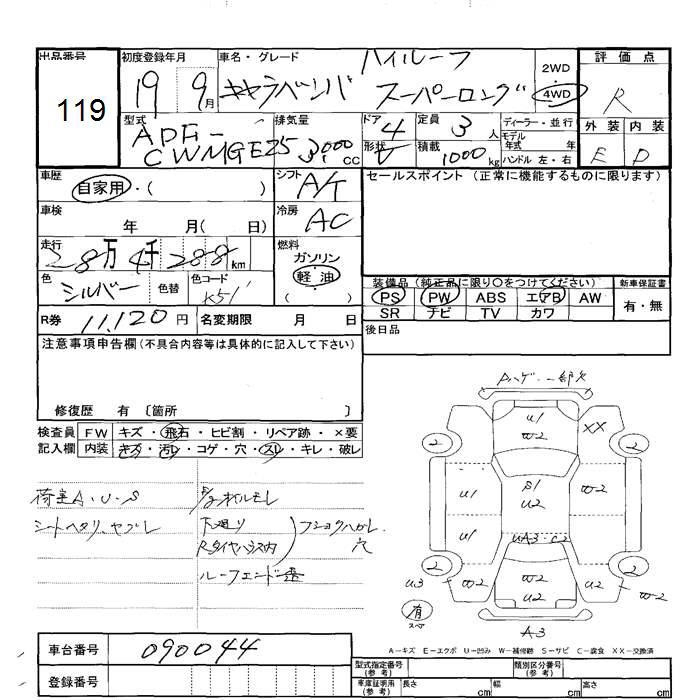 出品番号 初度登録年月 車名・グレード ハイルーフ 2WD 評価点
119 19年 9月 キャラバンバン スーパーロング 4WD R
型式 排気量 ドア 4 定員 3人 ディーラー・並行 外装 内装
ADF- モデル年式 年
CWMGE25 3,000cc 形状 V 積載 1000kg ハンドル 左・右 E D
車歴 自家用・( ) シフト A/T セールスポイント(正常に機能するものに限ります)
車検 年 月( 日) 冷房 AC
走行 28万4千288km 燃料 ガソリン 軽油
色 シルバー 色替 色コード K51 装備品(純正品に限り○をつけてください) 新車保証書
PS PW ABS エアB AW 有・無
R券 11,120円 名変期限 月 日 SR ナビ TV カワ
注意事項申告欄(不具合内容等は具体的に記入して下さい) 後日品
修復歴 有 〔箇所 〕
検査員 FW キズ・飛石・ヒビ割・リペア跡・×要
記入欄 内装 キズ・汚レ・コゲ・穴・スレ・キレ・破レ
Aハゲ・一部欠
U1
W2 XX
2 2
U1 S1 W2
U2
U1 UA3・C2
2 2
U3 W2 W2 U2 W2
U2
有
スペア
A3
荷室A・U・S
シートヘタリ、ヤブレ
オイルモレ
下廻リ フショクハガレ
Rタイヤハウス内 穴
ルーフエンド
A-キズ E-エクボ U-凹み W-補修跡 S-サビ C-腐食 XX-交換済
車台番号 090044 型式指定番号(参考) 類別区分番号(参考)
登録番号 車庫証明用(参考) 長さ cm 幅 cm 高さ cm